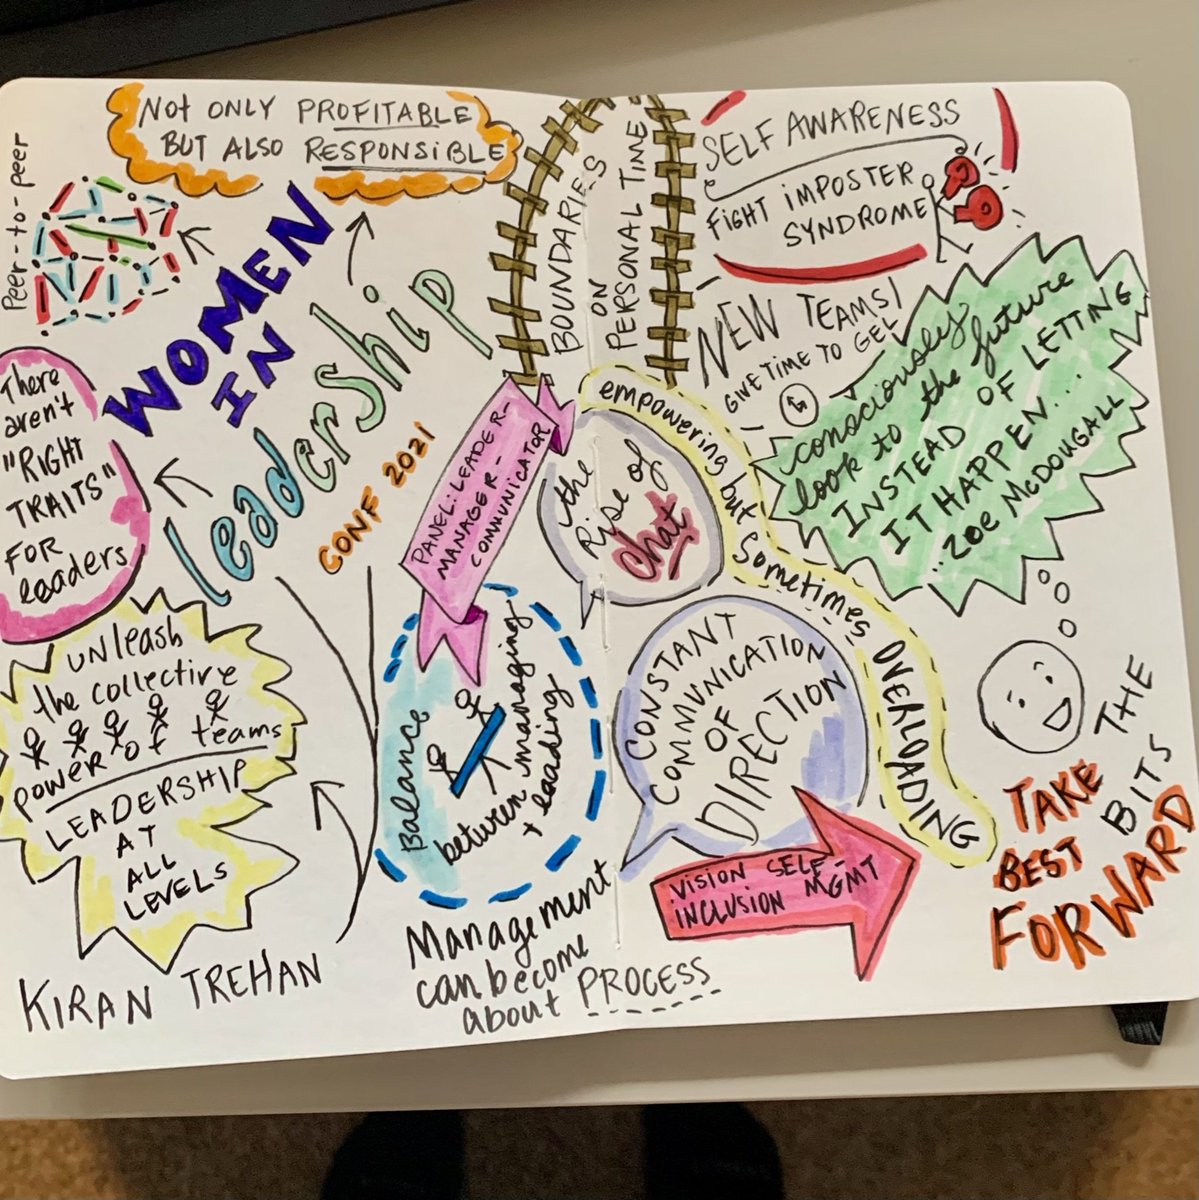 NOT ONLY PROFITABLE
BUT ALSO RESPONSIBLE
Peer-to-peer
WOMEN
IN
leadership
CONF 2021
There
aren't
"RIGHT
TRAITS"
FOR
leaders
UNleash
the collective
power of teams
LEADERSHIP
AT
ALL
LEVELS
KIRAN TREHAN
PANEL: LEADER-
MANAGER-
COMMUNICATOR
Balance
between managing
+ leading
Management
can become
about PROCESS
BOUNDARIES
ON
PERSONAL TIME
the
Rise of
chat
empowering but sometimes OVERLOADING
CONSTANT
COMMUNICATION
OF
DIRECTION
VISION SELF-
INCLUSION MGMT
SELF AWARENESS
FIGHT IMPOSTER
SYNDROME
NEW TEAMS!
GIVE TIME TO GEL
consciously
look to the future
INSTEAD OF LETTING
IT HAPPEN...
ZOE McDOUGALL
TAKE THE
BEST BITS
FORWARD